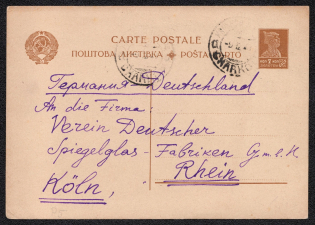 CARTE POSTALE
ПОШТОВА ЛИСТІВКА POŜTA KARTO
Германия Deutschland
An die Firma:
Verein Deutscher
Spiegelglas-Fabriken G.m.b.H
Rhein
Köln,